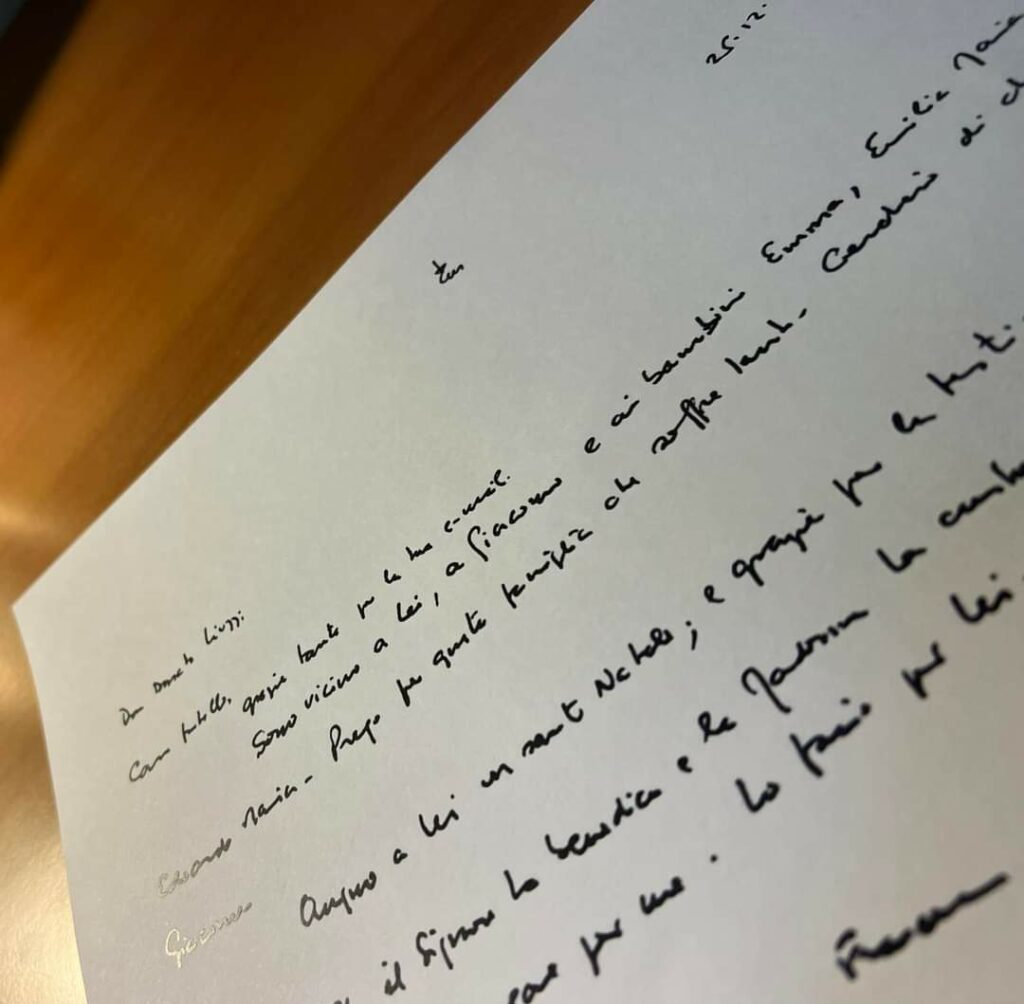 25.12.
Don Donato Liuzzi
Caro fratello, grazie tante per la sua e-mail.
Sono vicino a Lei, a Giacomo e ai bambini Emma, Emilia Maria
Edoardo Maria - Prego per questa famiglia che soffre tanto. di
Giacomo.
Auguro a Lei un santo Natale; e grazie per la
il Signore lo benedica e la Madonna la
per me. Lo faccio per Lei.